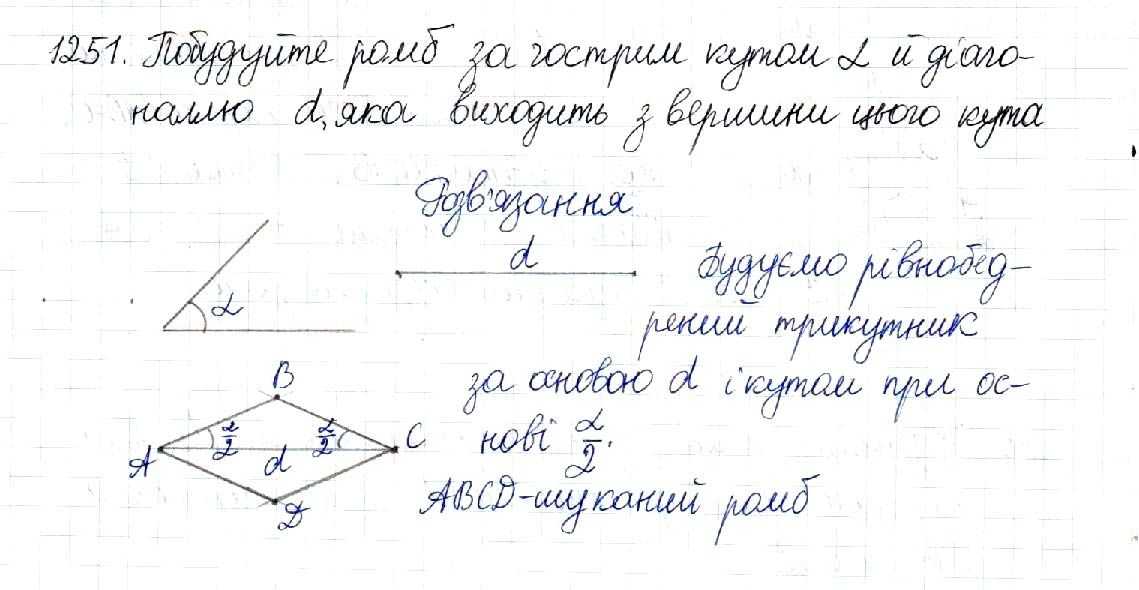 1251. Побудуйте ромб за гострим кутом α й діаго-
наллю d, яка виходить з вершини цього кута
Розв'язання
α
d
Будуємо рівнобед-
рений трикутник
за основою d і кутом при ос-
нові α/2.
B
α/2 α/2
A d C
D
ABCD-шуканий ромб